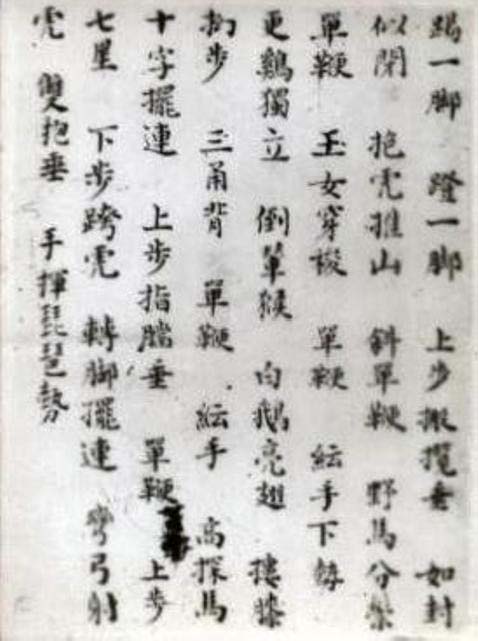 踢一脚 蹬一脚 上步搬攬垂 如封
似閉 抱虎推山 斜單鞭 野馬分鬃
單鞭 玉女穿梭 單鞭 紜手下勢
更鷄獨立 倒輦猴 白鵝亮翅 摟膝
抝步 三甬背 單鞭 紜手 高探馬
十字擺連 上步指膅垂 單鞭 上步
七星 下步跨虎 轉脚擺連 彎弓射
虎 雙抱垂 手揮琵琶勢